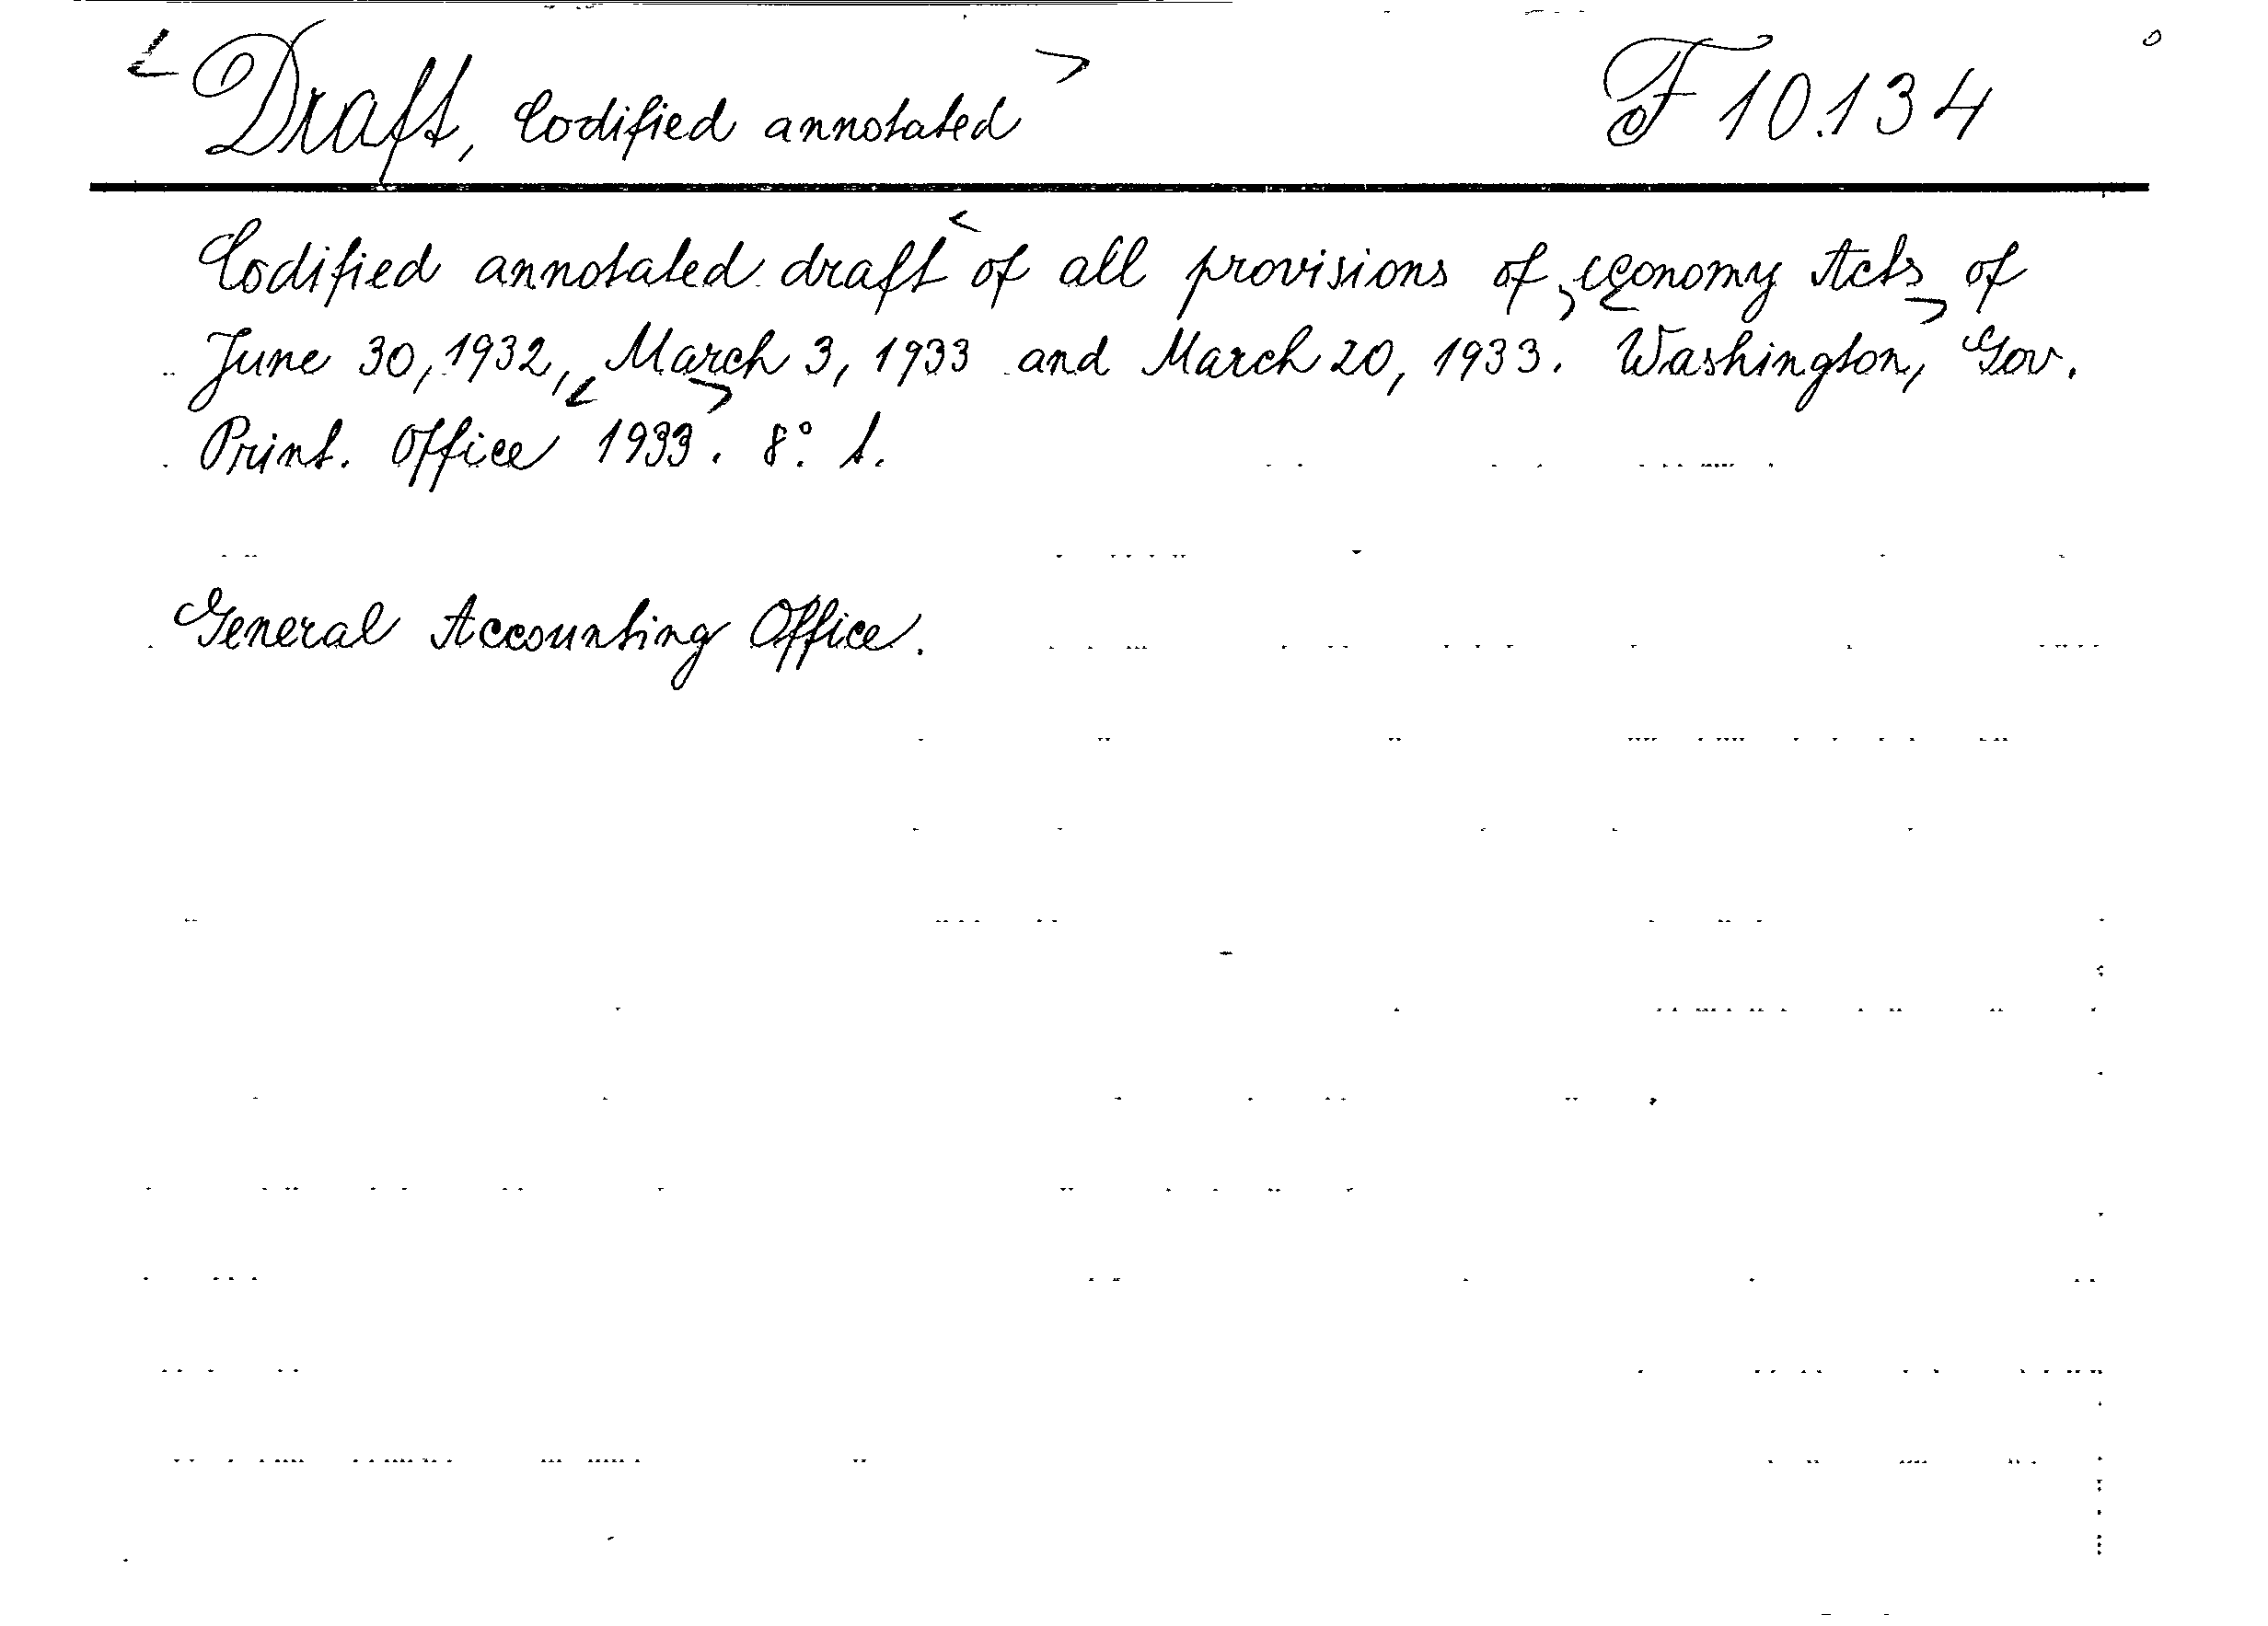 <Draft, Codified annotated> F 10.134
Codified annotated draft < of all provisions of > < economy Acts > of
June 30, 1932, < March > 3, 1933 and March 20, 1933. Washington, Gov.
Print. Office 1933. 8°. 1.
General Accounting Office.